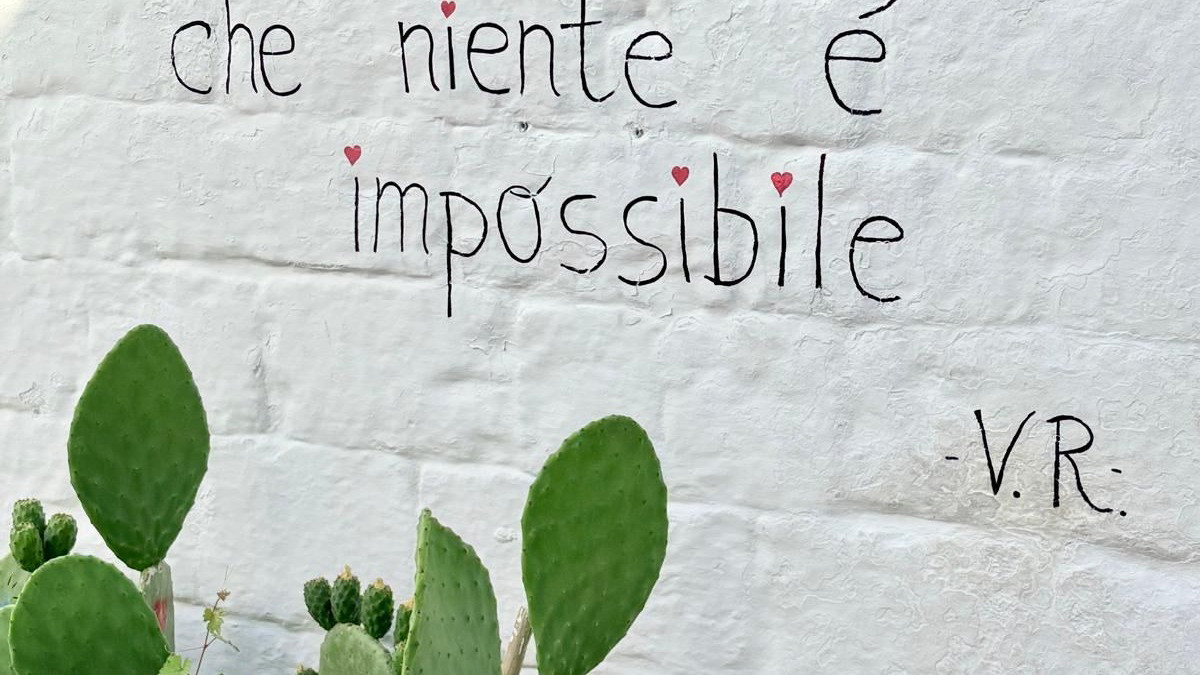 che niente é
impóssibile
- V. R. -